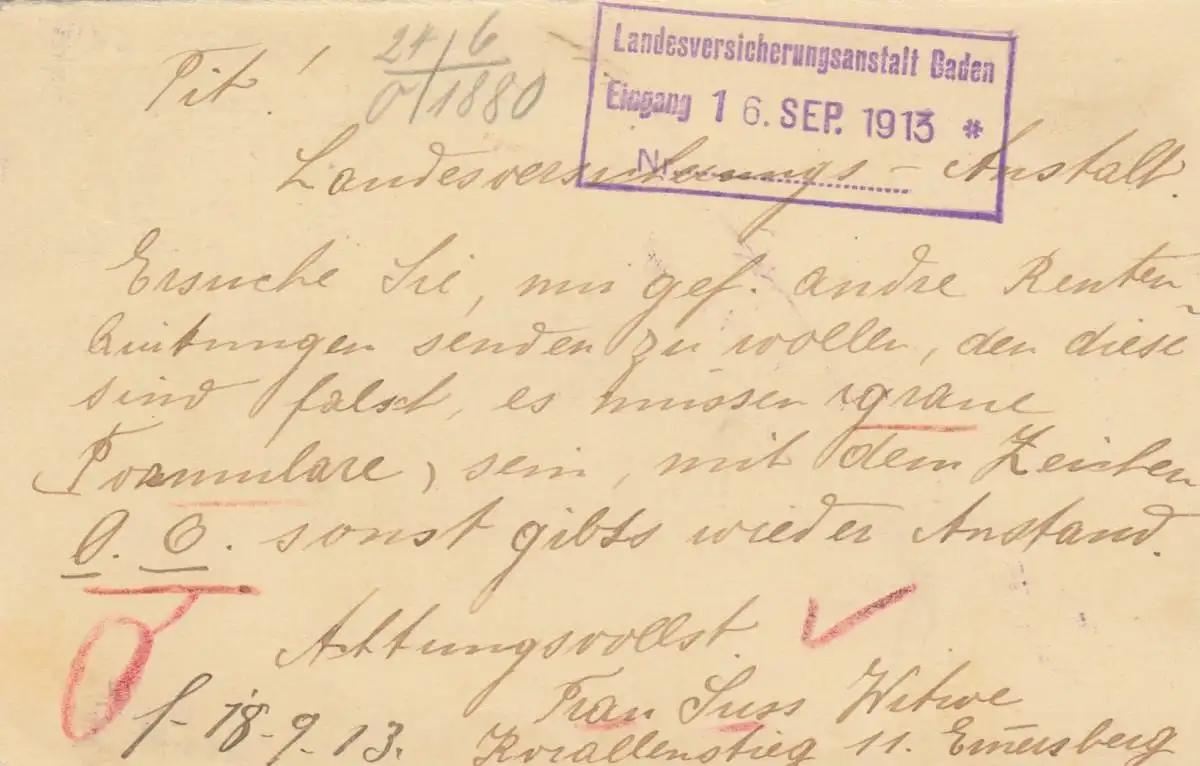 Tit!
24/6
0/1880
Landesversicherungsanstalt Baden
Eingang 16. SEP. 1913 *
Nr.
Landesversicherungs-Anstalt.
Ersuche Sie, mir gef. andre Renten-
Quittungen senden zu wollen, den diese
sind falsch, es müssen graue
(Formulare) sein, mit dem Zeichen
O. O. sonst gibts wieder Anstand.
Achtungsvollst
Frau Suss Witwe
Korallenstieg 11. Emersberg
f- 18-9-13.